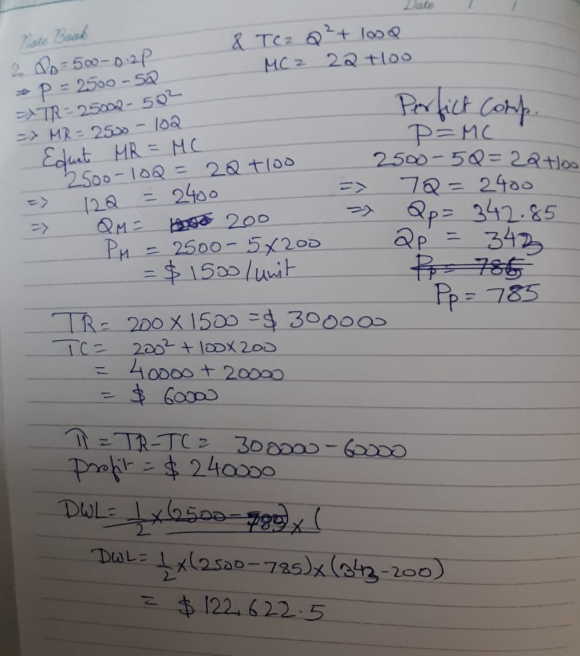 Note Book
Date
2 Q_D = 500 - 0.2P
⇒ P = 2500 - 5Q
⇒ TR = 2500Q - 5Q²
⇒ MR = 2500 - 10Q
Equat MR = MC
2500 - 10Q = 2Q + 100
⇒ 12Q = 2400
⇒ Q_M = 200
P_M = 2500 - 5 × 200
= $ 1500/unit
& TC = Q² + 100Q
MC = 2Q + 100
Perfict Comp.
P = MC
2500 - 5Q = 2Q + 100
⇒ 7Q = 2400
⇒ Q_P = 342.85
Q_P = 343
P_P = 786
P_P = 785
TR = 200 × 1500 = $ 300000
TC = 200² + 100 × 200
= 40000 + 20000
= $ 60000
π = TR - TC = 300000 - 60000
Profit = $ 240000
DWL = 1/2 × (2500 - 785) × (
DWL = 1/2 × (2500 - 785) × (343 - 200)
= $ 122,622.5